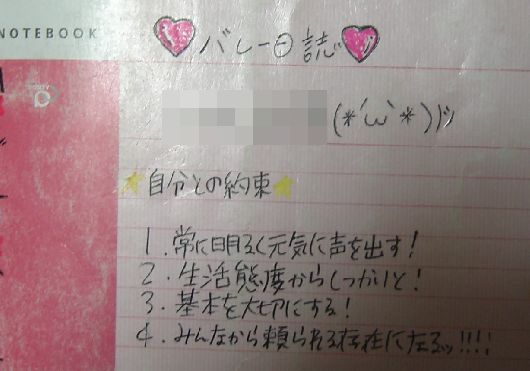 NOTEBOOK
バレー日誌
(*´ω`*)ﾄﾞｼ
自分との約束
1. 常に明るく元気に声を出す!
2. 生活態度からしっかりと!
3. 基本を大切にする!
4. みんなから頼られる存在になるッ!!!!